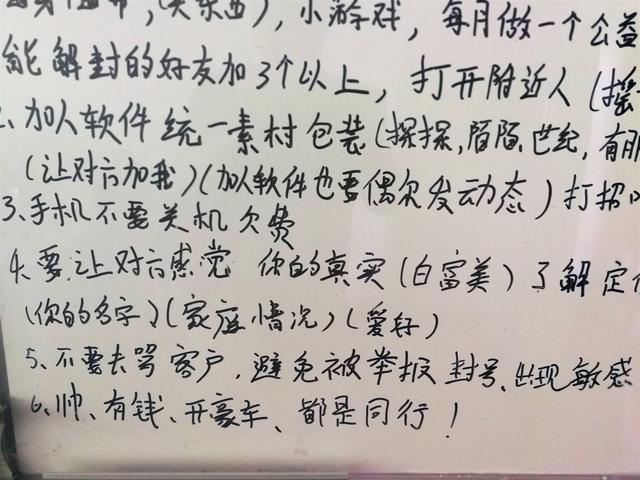 (买东西), 小游戏, 每月做一个公益
能解封的好友加3个以上, 打开附近人(摇
、加人软件统一素材包装(探探,陌陌,世纪,有
(让对方加我)(加人软件也要偶尔发动态)打招
3、手机不要关机欠费
4、要让对方感觉 你的真实(白富美)了解定
(你的名字)(家庭情况)(爱好)
5、不要去骂客户,避免被举报封号、出现敏感
6、帅、有钱、开豪车、都是同行!